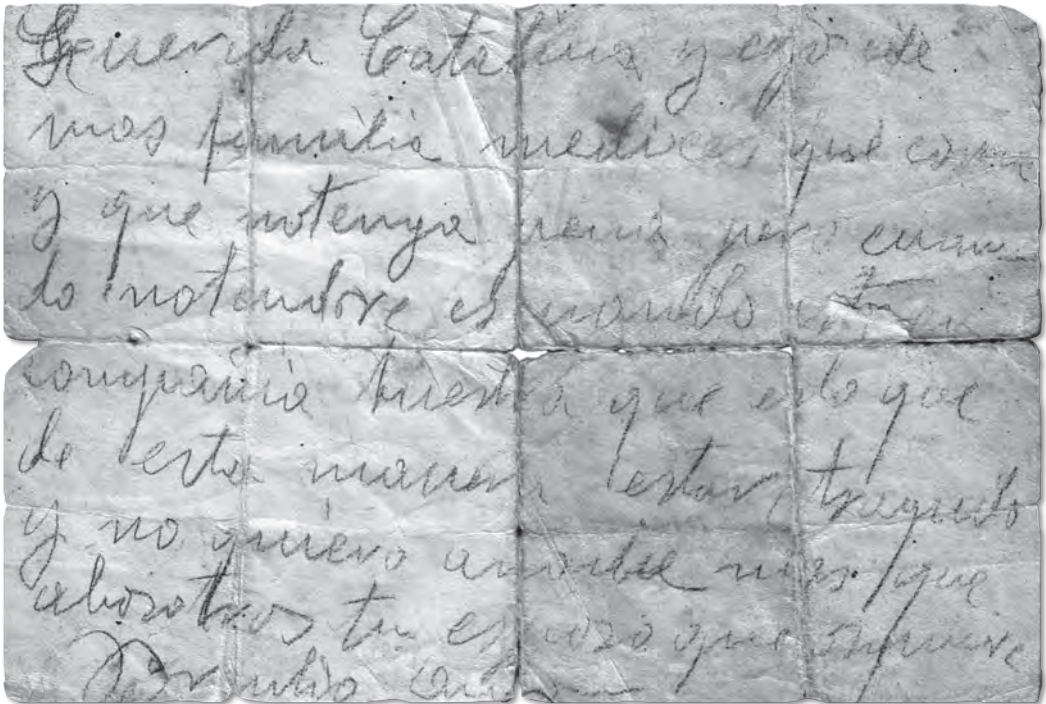 Querida Catalina y ejo de
mas familia medices que coma
y que notenga penis pero cuan
do notendre es cuando
compañia buestra que es lo que
de esta manera estar trequilo
y no quiero anadie mas que
abosotros tu esposo que os quiere